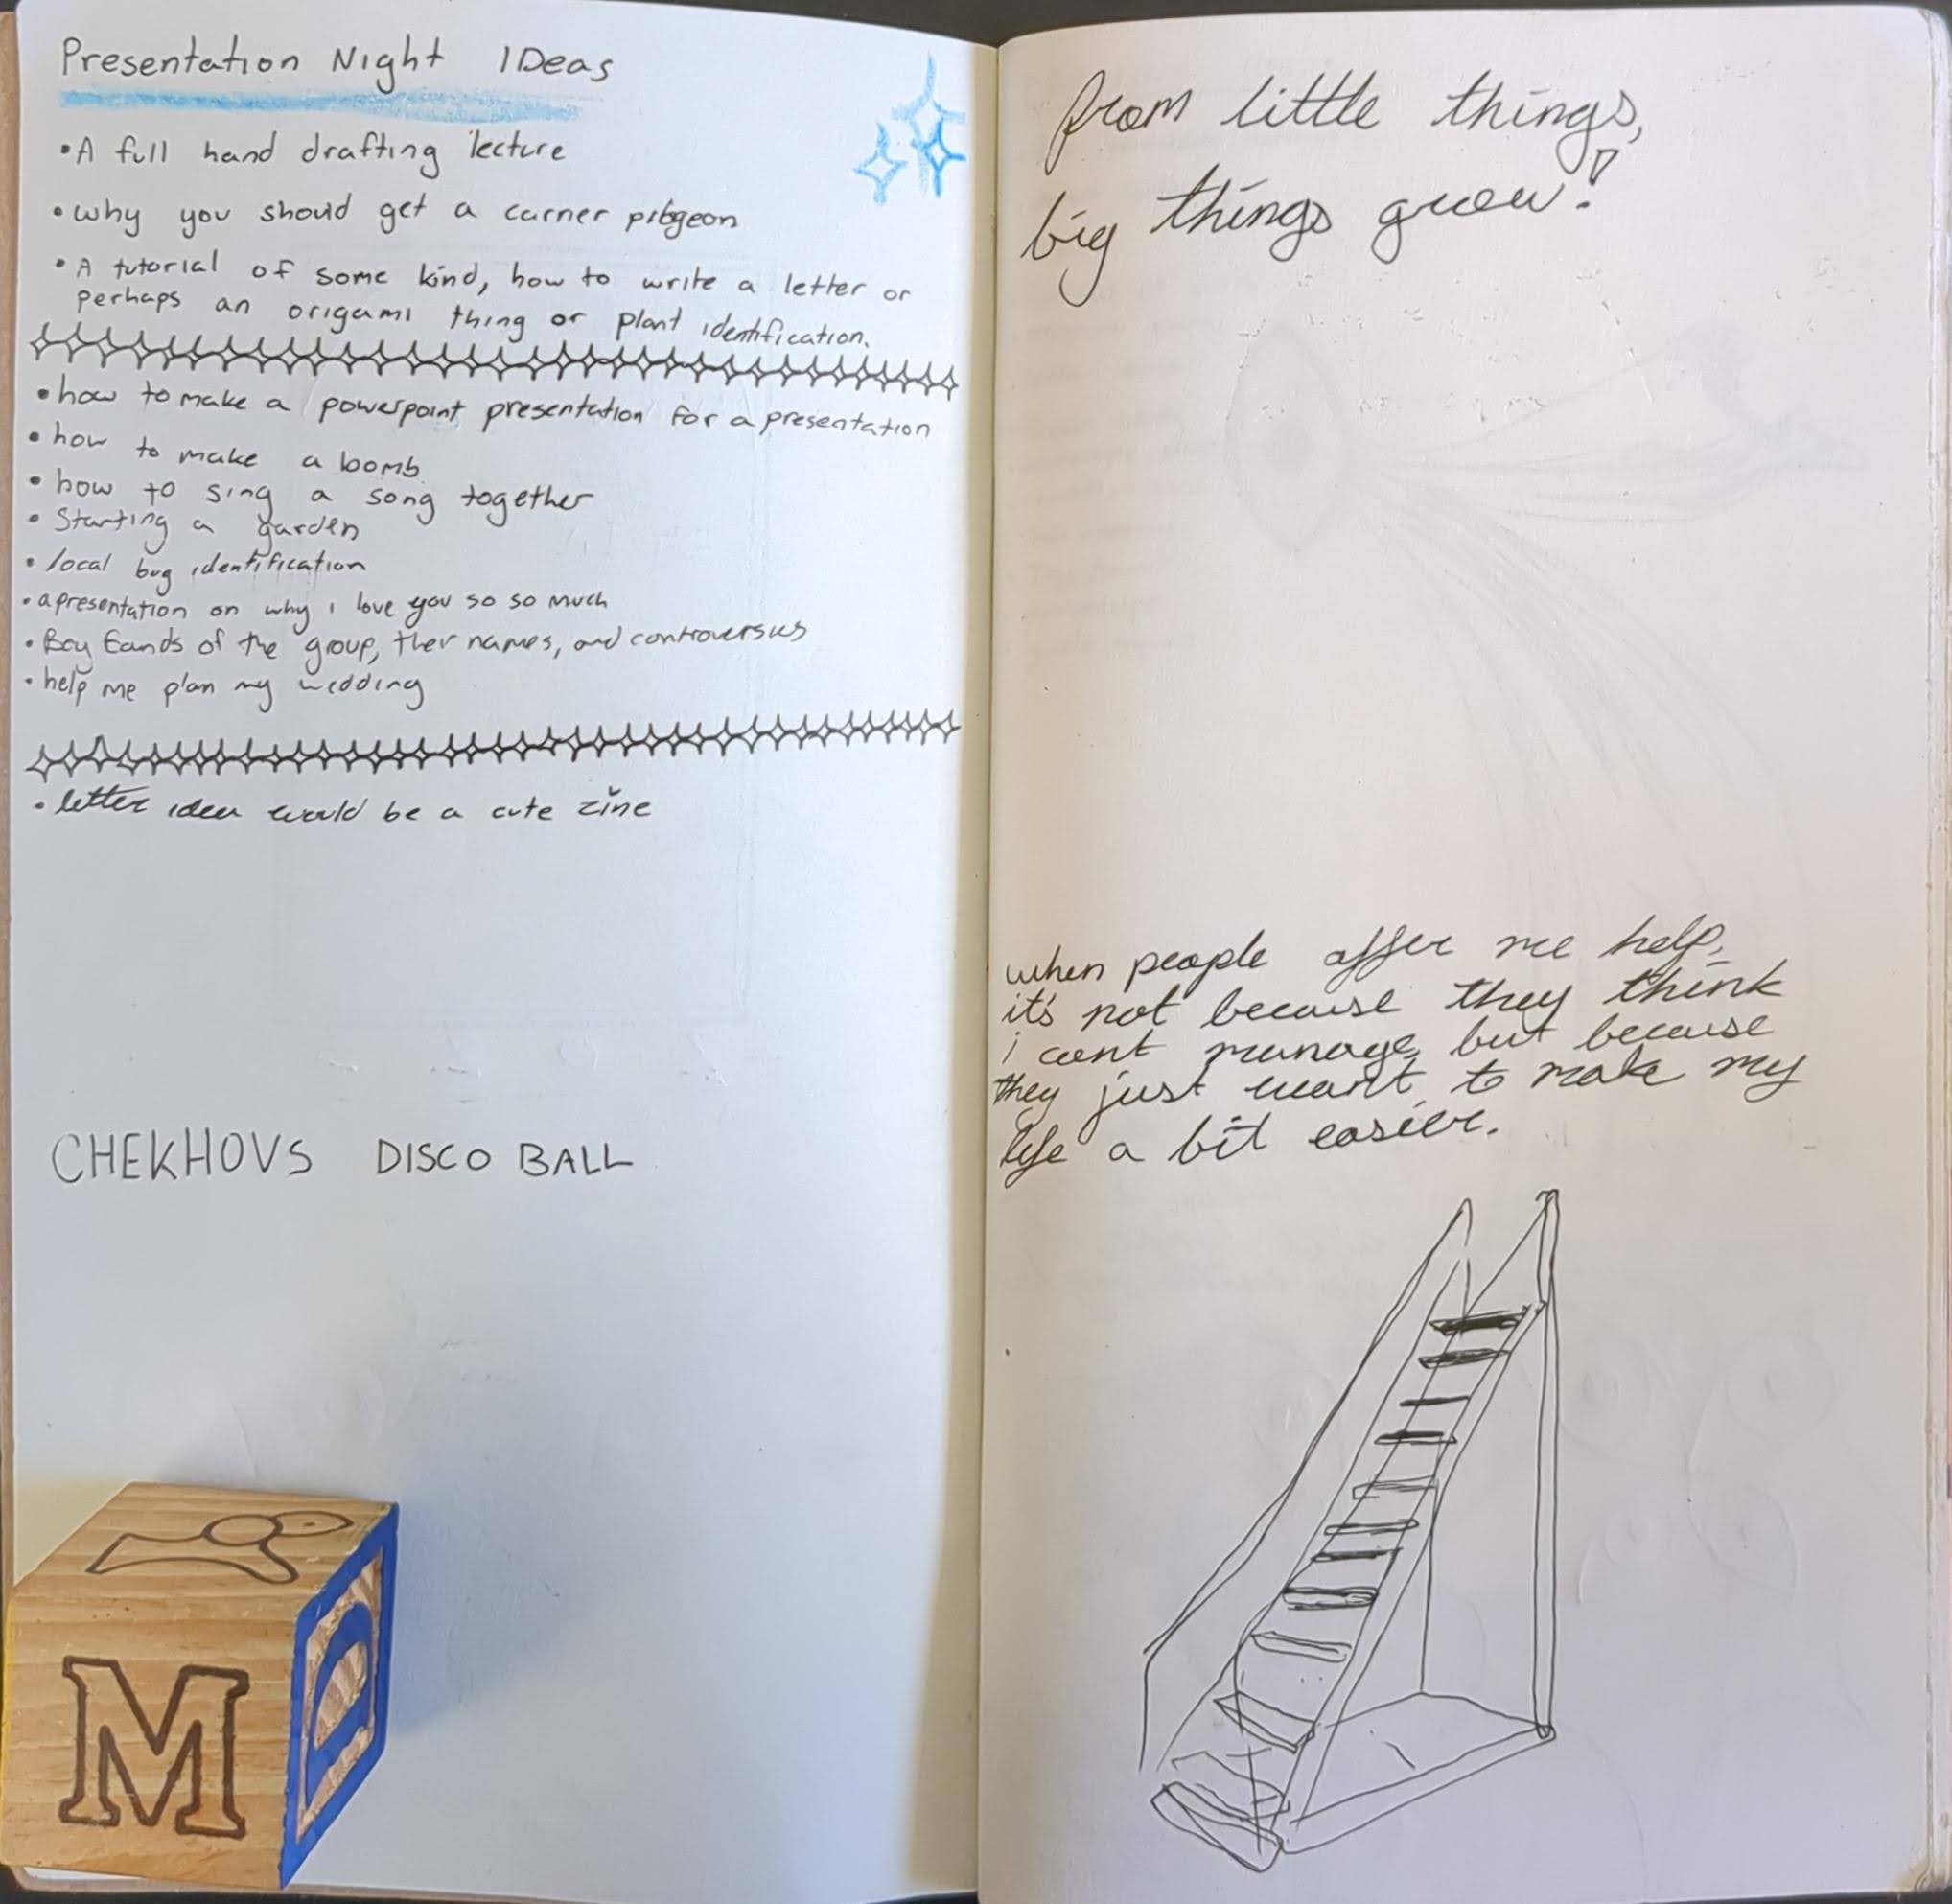 Presentation Night IDeas
• A full hand drafting lecture
• why you should get a carrier pidgeon
• A tutorial of some kind, how to write a letter or
perhaps an origami thing or plant identification.
• how to make a powerpoint presentation for a presentation
• how to make a bomb
• how to sing a song together
• Starting a garden
• local bug identification
• a presentation on why i love you so so much
• Boy bands of the group, ther names, and controversies
• help me plan my wedding
• letter idea would be a cute zine
CHEKHOVS DISCO BALL
M
from little things,
big things grow!
when people offer me help,
it's not because they think
i cant manage, but because
they just want to make my
life a bit easier.